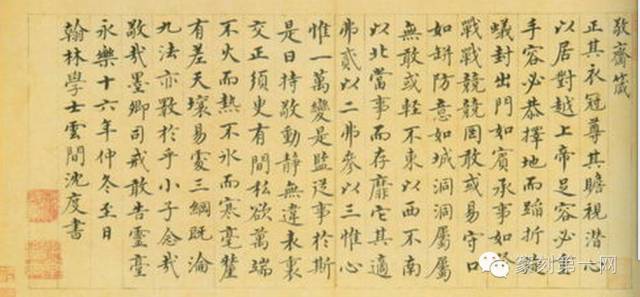 敬齋箴
正其衣冠尊其瞻視潛心
以居對越上帝足容必重
手容必恭擇地而蹈折旋
蟻封出門如賓承事如祭
戰戰兢兢罔敢或易守口
如缾防意如城洞洞屬屬
無敢或輕不東以西不南
以北當事而存靡它其適
弗貳以二弗參以三惟心
惟一萬變是監從事於斯
是曰持敬動靜無違表裏
交正須臾有間私欲萬端
不火而熱不冰而寒毫釐
有差天壤易處三綱既淪
九法亦斁於乎小子念哉
敬哉墨卿司戒敢告靈臺
永樂十六年仲冬至日
翰林學士雲間沈度書
篆刻第一网